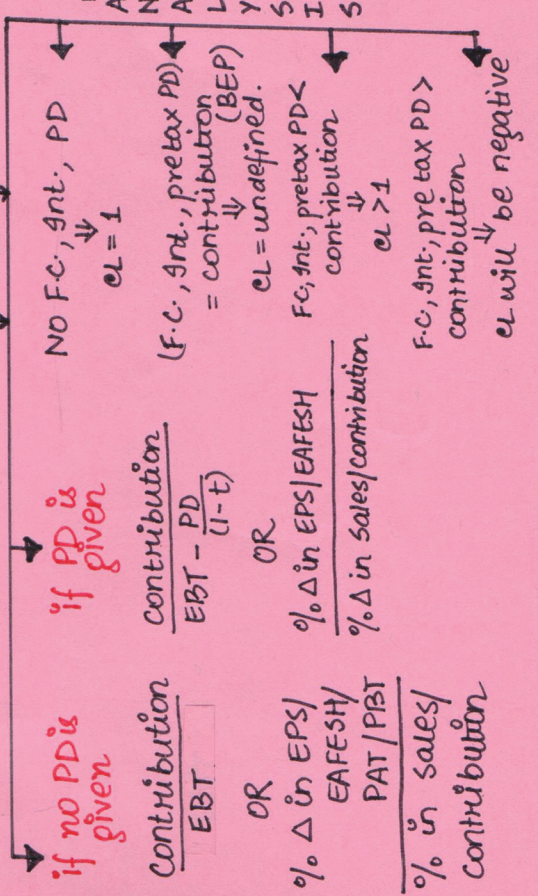 if no PD is
given
Contribution
EBT
OR
% Δ in EPS/
EAFESH/
PAT/PBT
% in sales/
Contribution
if PD is
given
Contribution
EBT - PD
(1-t)
OR
% Δ in EPS/EAFESH
% Δ in sales/contribution
A
N
A
L
Y
S
I
S
NO F.C., Int., PD
⇓
CL = 1
(F.C., Int., pretax PD)
= contribution
(BEP)
⇓
CL = undefined.
FC, Int, pretax PD <
contribution
⇓
CL > 1
F.C., Int., pre tax PD >
contribution
⇓
CL will be negative